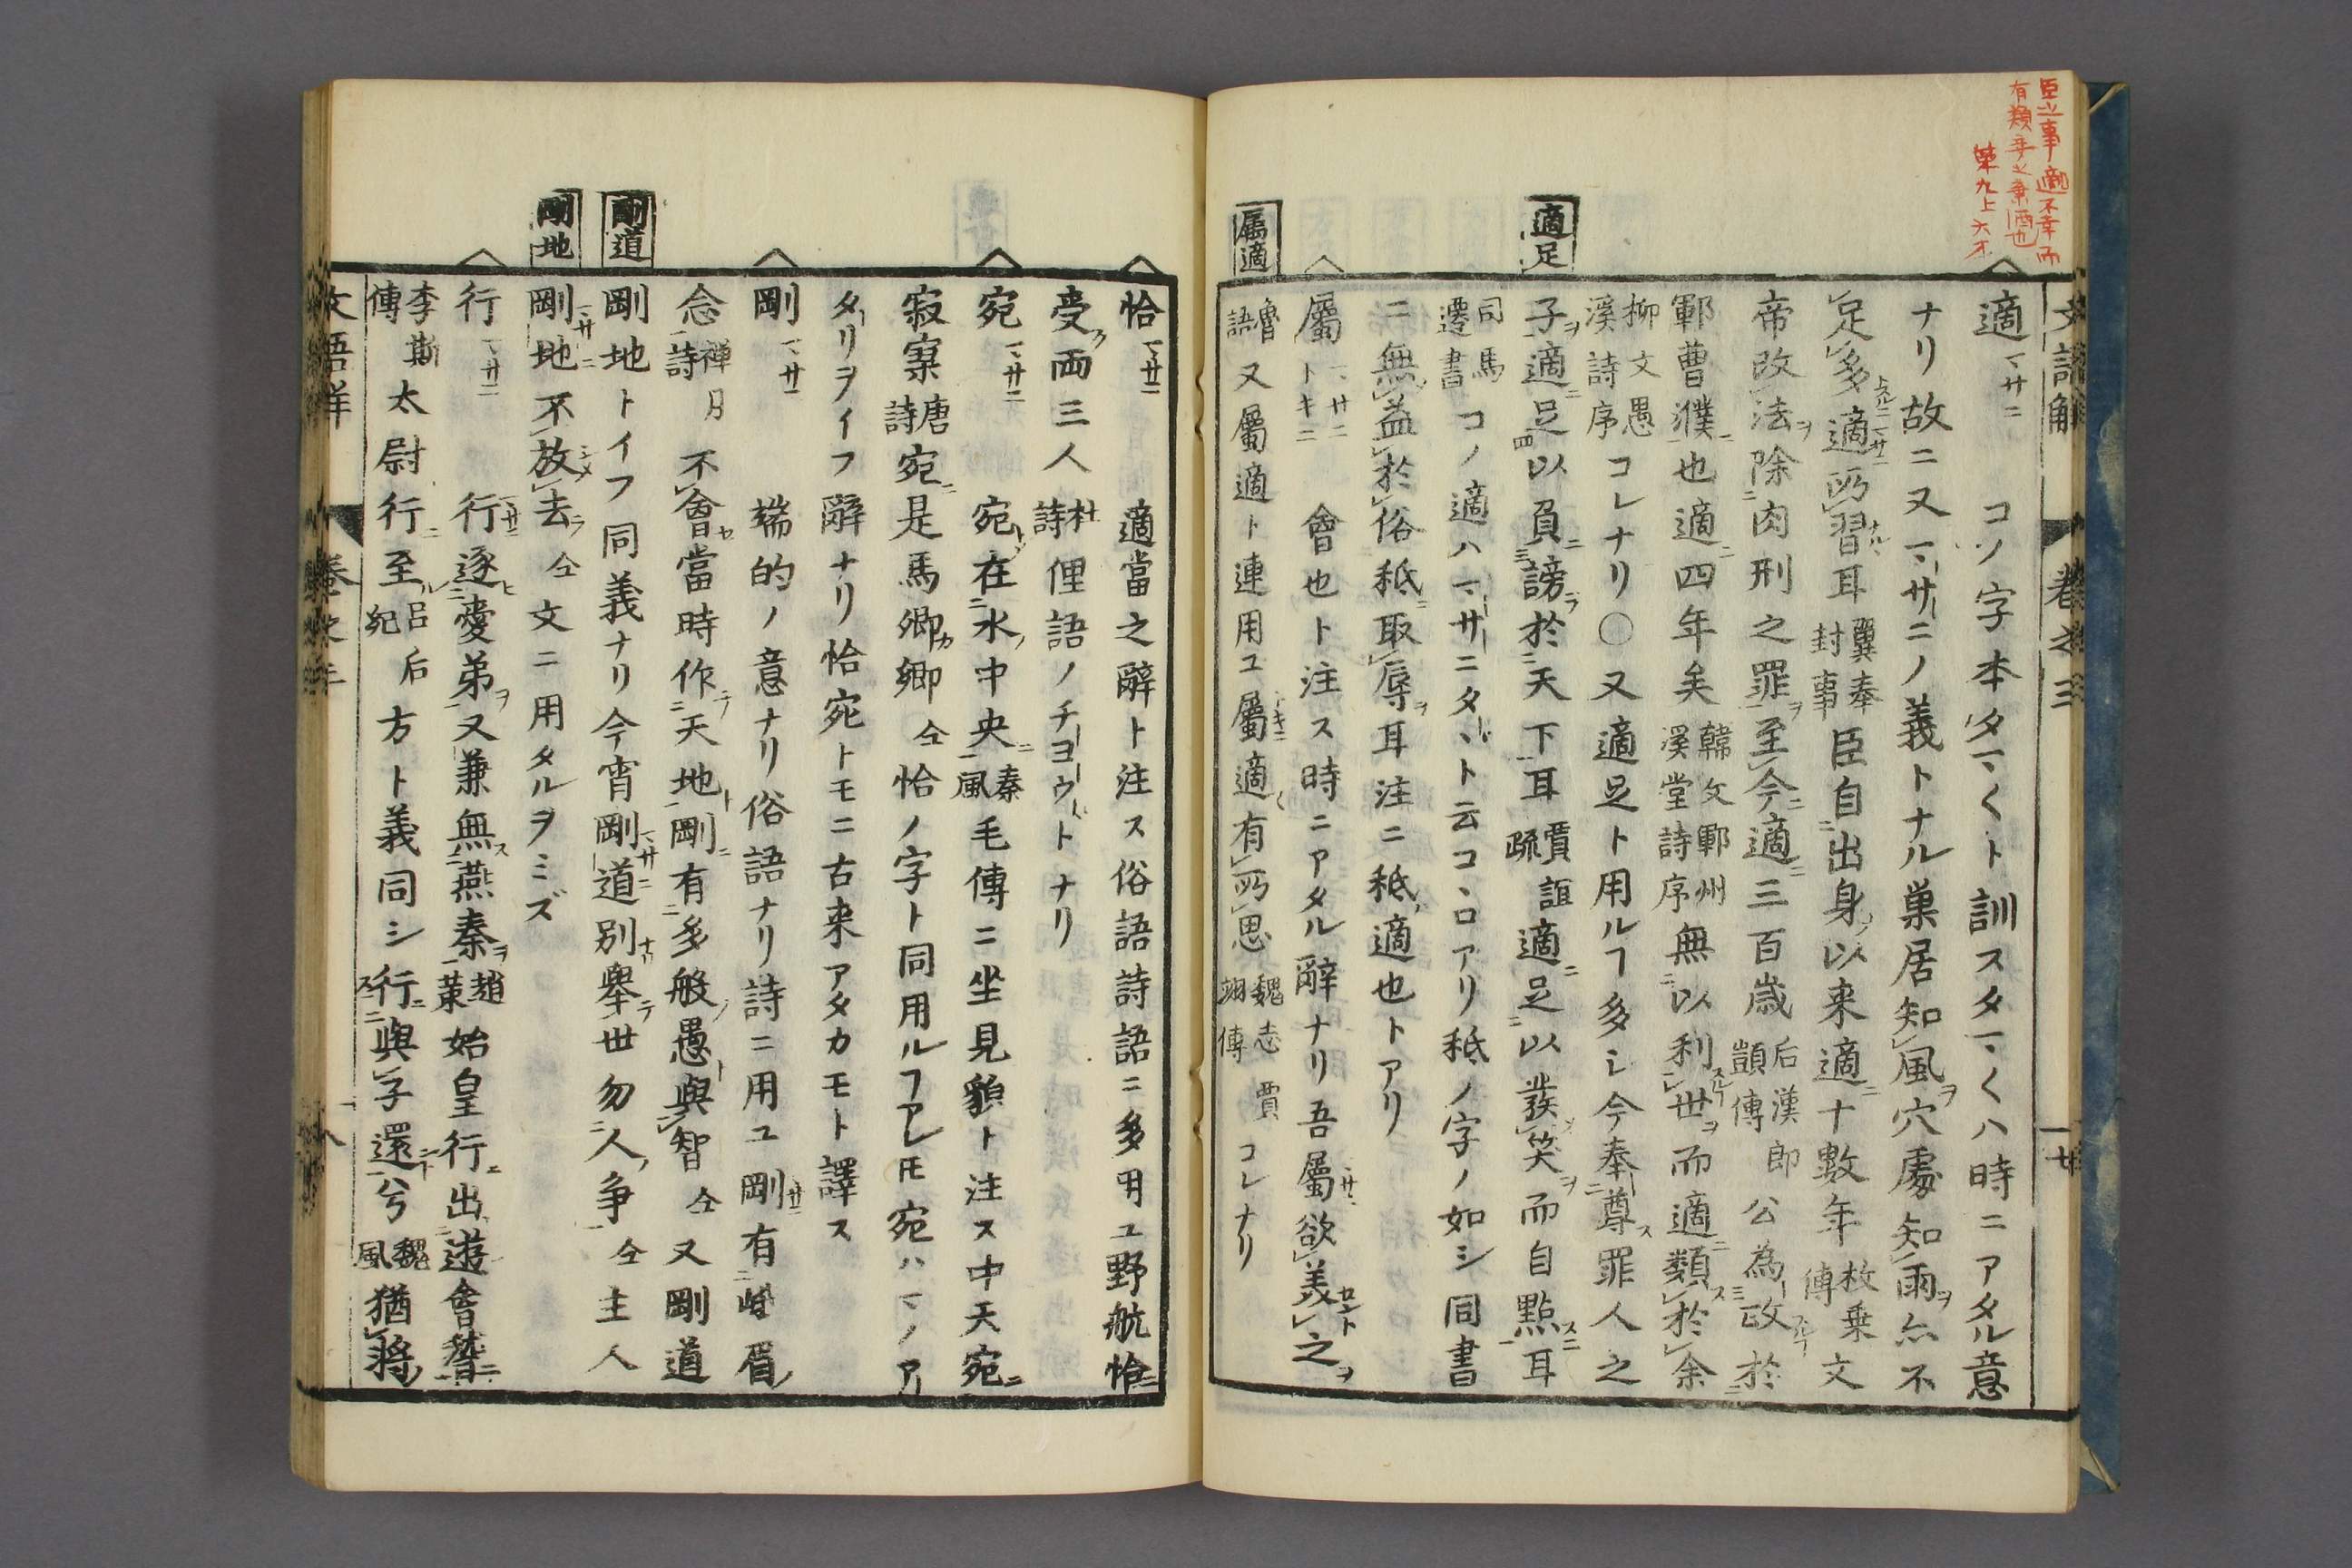 臣之事適不幸而
有類乎
第九上六オ
適足
属適
適 マサニ コノ字本タマ〱ト訓スタマ〱ハ時ニアタル意
ナリ故ニ又マサニノ義トナル巣居知風穴處知雨亦不
足多適所習耳 翼奉封事 臣自出身以来適十數年 枚乗傳 文
帝改法除肉刑之罪至今適三百歳 后漢郎顗傳 公為政於
鄆曹濮也適四年矣 韓文鄆州溪堂詩序 無以利世而適類於余
柳文愚溪詩序 コレナリ〇又適足ト用ルヿ多シ今奉尊罪人之
子適足以負謗於天下耳 賈誼疏 適足以發笑而自點耳
司馬遷書 コノ適ハマサニタヾト云コヽロアリ秪ノ字ノ如シ同書
ニ無益於俗秪取辱耳注ニ秪適也トアリ
屬 マサニ トキニ 會也ト注ス時ニアタル辭ナリ吾屬欲義之
魯語 又屬適ト連用ユ屬適有所思 魏志賈翊傳 コレナリ
剛道
剛地
恰 マサニ 適當之辭ト注ス俗語詩語ニ多用ユ野航恰
受両三人 杜詩 俚語ノチヨウドトナリ
宛 マサニ 宛在水中央 秦風 毛傳ニ坐見貌ト注ス中天宛
寂寞 唐詩 宛是馬卿卿 仝 恰ノ字ト同用ルヿアレ𪜈宛ハマノアリ
タリヲイフ辭ナリ恰宛トモニ古来アタカモト譯ス
剛 マサニ 端的ノ意ナリ俗語ナリ詩ニ用ユ剛有峨眉
念 禅月詩 不會當時作天地剛有多般愚與智 仝 又剛道
剛地トイフ同義ナリ今宵剛道別舉世勿人争 仝 主人
剛地不放去 仝 文ニ用タルヲミズ
行 マサニ 行逐愛弟又兼無燕秦 趙策 始皇行出遊會稽
李斯傳 太尉行至 呂后紀 方ト義同シ行與子還兮 魏風 猶將